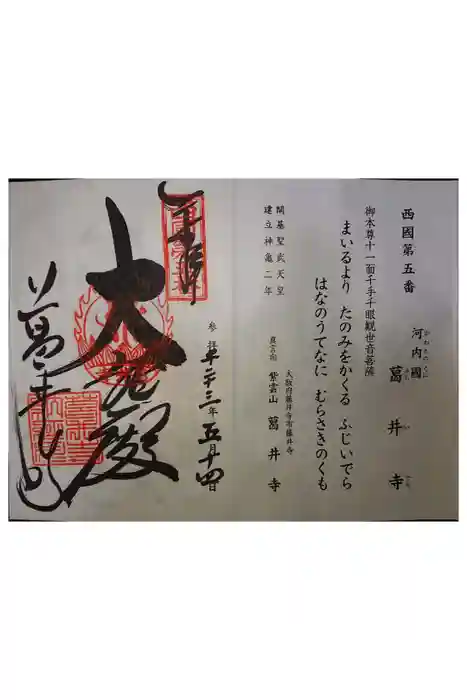 西國第五番
河内國 葛井寺
かわちのくに ふじいでら
御本尊十一面千手千眼観世音菩薩
まいるより たのみをかくる ふじいでら
はなのうてなに むらさきのくも
開基聖武天皇
建立神龜二年
大阪府藤井寺市藤井寺
真言宗 紫雲山 葛井寺
参詣 平二十三年五月十四日
奉拝
大悲殿
葛井寺